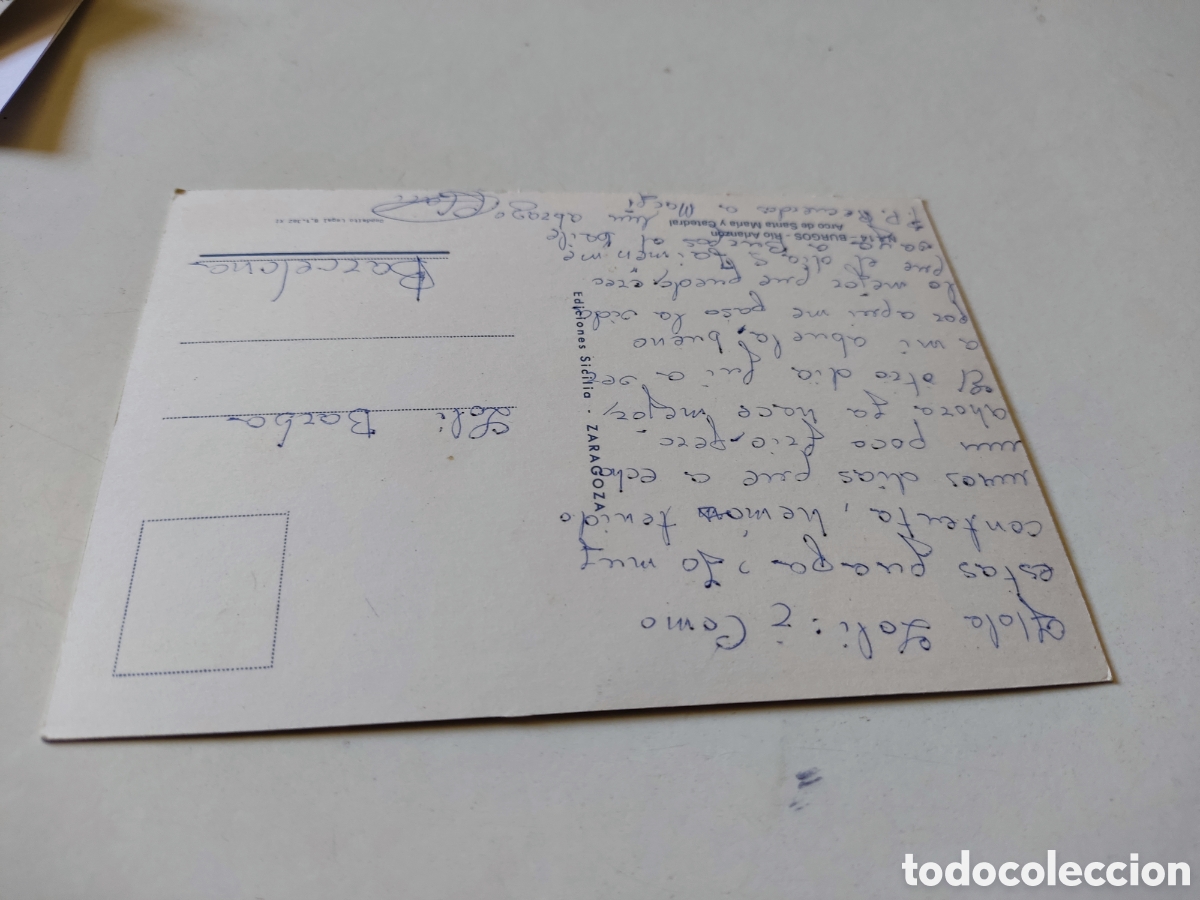 Hola Loli: ¿ Como
estas guapa, yo muy
contenta, hemos tenido
unos dias que a echo
un poco frio, pero
ahora ya hace mejor,
El otro dia fui a ver
a mi abuela, bueno
por aqui me paso la vida
lo mejor que puedo, creo
que el dia
ya a al baile
un abrazo
P. Recuerda a
BURGOS - Rio Arlanzón
Arco de Santa María y Catedral
Ediciones Sicilia - ZARAGOZA
Loli Barba
Barcelona
todocoleccion